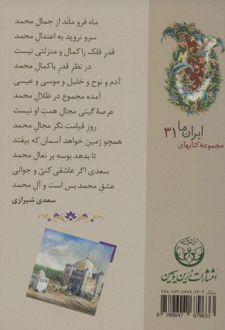 ماه فرو ماند از جمال محمد
سرو نروید به اعتدال محمد
قدر فلک را کمال و منزلتی نیست
در نظر قدر باکمال محمد
آدم و نوح و خلیل و موسی و عیسی
آمده مجموع در ظلال محمد
عرصهٔ گیتی مجال همت او نیست
روز قیامت نگر مجال محمد
همچو زمین خواهد آسمان که بیفتد
تا بدهد بوسه بر نعال محمد
سعدی اگر عاشقی کنی و جوانی
عشق محمد بس است و آل محمد
سعدی شیرازی
ایران ما
۳۱
مجموعه کتابهای
انتشارات زرین و سیمین